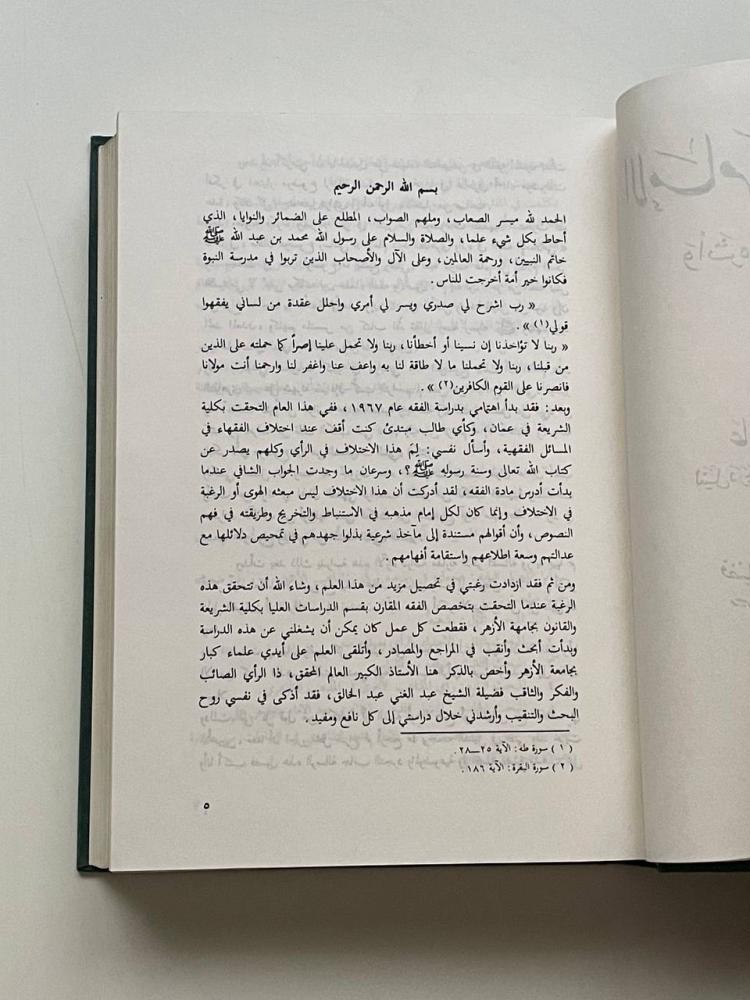 بسم الله الرحمن الرحيم
الحمد لله ميسر الصعاب، وملهم الصواب، المطلع على الضمائر والنوايا، الذي
أحاط بكل شيء علما، والصلاة والسلام على رسول الله محمد بن عبد الله ﷺ
خاتم النبيين، ورحمة العالمين، وعلى الآل والأصحاب الذين تربوا في مدرسة النبوة
فكانوا خير أمة أخرجت للناس.
« رب اشرح لي صدري ويسر لي أمري واحلل عقدة من لساني يفقهوا
قولي(١) ».
« ربنا لا تؤاخذنا إن نسينا أو أخطأنا، ربنا ولا تحمل علينا إصراً كما حملته على الذين
من قبلنا، ربنا ولا تحملنا ما لا طاقة لنا به واعف عنا واغفر لنا وارحمنا أنت مولانا
فانصرنا على القوم الكافرين(٢) ».
وبعد: فقد بدأ اهتمامي بدراسة الفقه عام ١٩٦٧، ففي هذا العام التحقت بكلية
الشريعة في عمان، وكأي طالب مبتدئ كنت أقف عند اختلاف الفقهاء في
المسائل الفقهية، وأسأل نفسي: لِمَ هذا الاختلاف في الرأي وكلهم يصدر عن
كتاب الله تعالى وسنة رسوله ﷺ؟، وسرعان ما وجدت الجواب الشافي عندما
بدأت أدرس مادة الفقه، لقد أدركت أن هذا الاختلاف ليس مبعثه الهوى أو الرغبة
في الاختلاف وإنما كان لكل إمام مذهبه في الاستنباط والتخريج وطريقته في فهم
النصوص، وأن أقوالهم مستندة إلى مآخذ شرعية بذلوا جهدهم في تمحيص دلائلها مع
عدالتهم وسعة اطلاعهم واستقامة أفهامهم.
ومن ثم فقد ازدادت رغبتي في تحصيل مزيد من هذا العلم، وشاء الله أن تتحقق هذه
الرغبة عندما التحقت بتخصص الفقه المقارن بقسم الدراسات العليا بكلية الشريعة
والقانون بجامهة الأزهر، فقطعت كل عمل كان يمكن أن يشغلني عن هذه الدراسة
وبدأت أبحث وأنقب في المراجع والمصادر، وأتلقى العلم على أيدي علماء كبار
بجامعة الأزهر وأخص بالذكر هنا الأستاذ الكبير العالم المحقق، ذا الرأي الصائب
والفكر والثاقب فضيلة الشيخ عبد الغني عبد الخالق، فقد أذكى في نفسي روح
البحث والتنقيب وأرشدني خلال دراستي إلى كل نافع ومفيد.
( ١ ) سورة طه : الآية ٢٥ــ٢٨.
( ٢ ) سورة البقرة : الآية ١٨٦ .
٥